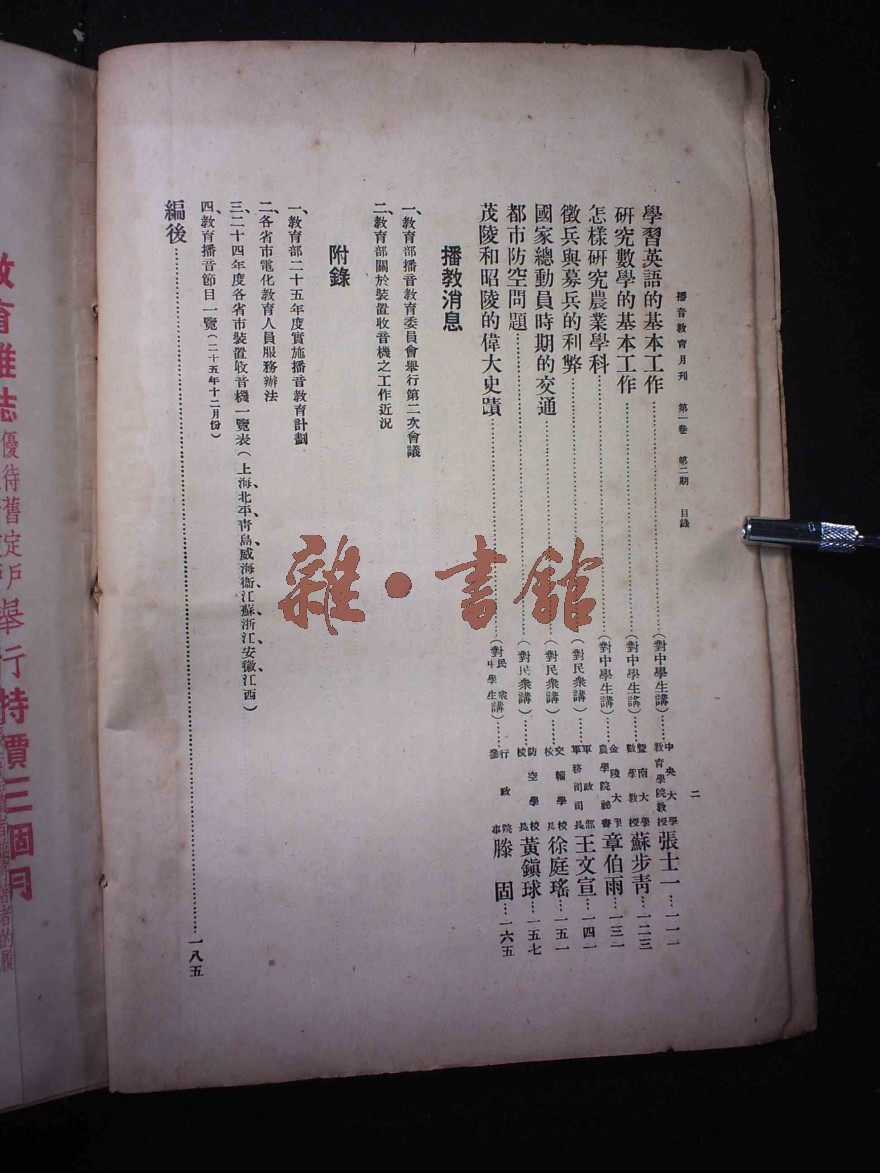 播音教育月刊 第一卷 第二期 目錄
二
學習英語的基本工作……(對中學生講)……中央大學教育學院教授 張士一…一一一
研究數學的基本工作……(對中學生講)……暨南大學數學教授 蘇步青…一二三
怎樣研究農業學科……(對中學生講)……金陵大學農學院祕書 章伯雨…一三一
徵兵與募兵的利弊……(對民衆講)……軍政部軍務司司長 王文宣…一四一
國家總動員時期的交通……(對民衆講)……交輜學校校長 徐庭瑤…一五一
都市防空問題……(對民衆講)……防空學校校長 黃鎭球…一五七
茂陵和昭陵的偉大史蹟……(對民衆中學生講)……行政院參事 滕固…一六五
播教消息
一、教育部播音教育委員會舉行第二次會議
二、教育部關於裝置收音機之工作近況
附錄
一、教育部二十五年度實施播音教育計劃
二、各省市電化教育人員服務辦法
三、二十四年度各省市裝置收音機一覽表(上海、北平、青島、威海衞、江蘇、浙江、安徽、江西)
四、教育播音節目一覽(二十五年十二月份)
編後……一八五
雜·書館
教育雜誌
優待舊定戶舉行特價三個月